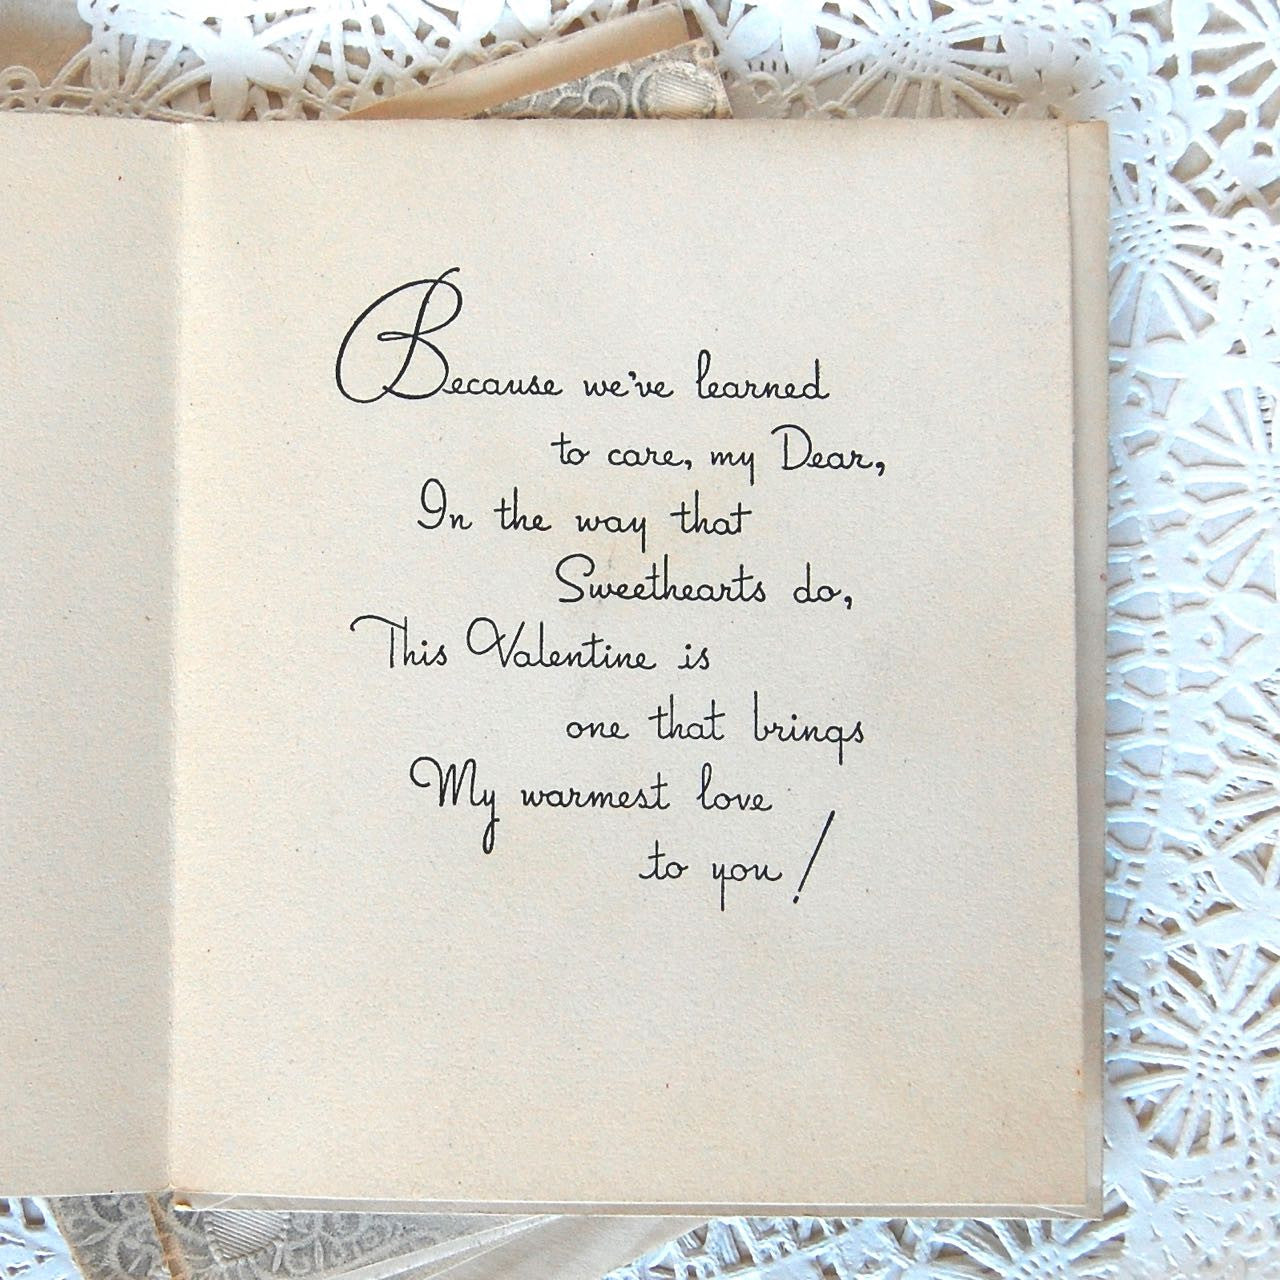 Because we've learned
to care, my Dear,
In the way that
Sweethearts do,
This Valentine is
one that brings
My warmest love
to you!